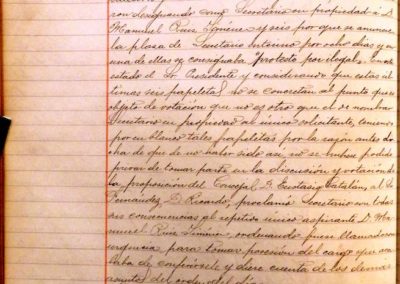 ron designando como Secretario en propiedad á D.
Manuel Ruiz Jiménez y seis por que se anuncie
la plaza de Secretario interino por ocho días y en
una de ellas se consignaba "protesto por ilegal". En este
estado el Sr. Presidente y considerando que estas úl-
timas seis papeletas no se concretan al punto que es
objeto de votación que no es otro que el de nombrar
Secretario en propiedad al único solicitante, teniendo
por en blanco tales papeletas por la razón antes di-
cha de que de no haber sido así no se hubiese podido
privar de tomar parte en la discusión y votación de
la proposición del Concejal D. Eustasio Catalán, al Sr.
Fernández D. Ricardo, proclama Secretario con todas
sus consecuencias al repetido único aspirante D. Ma-
nuel Ruiz Jiménez, ordenando fuese llamado con
urgencia para tomar posesión del cargo que aca-
baba de conferírsele y diese cuenta de los demás
asuntos del orden del día